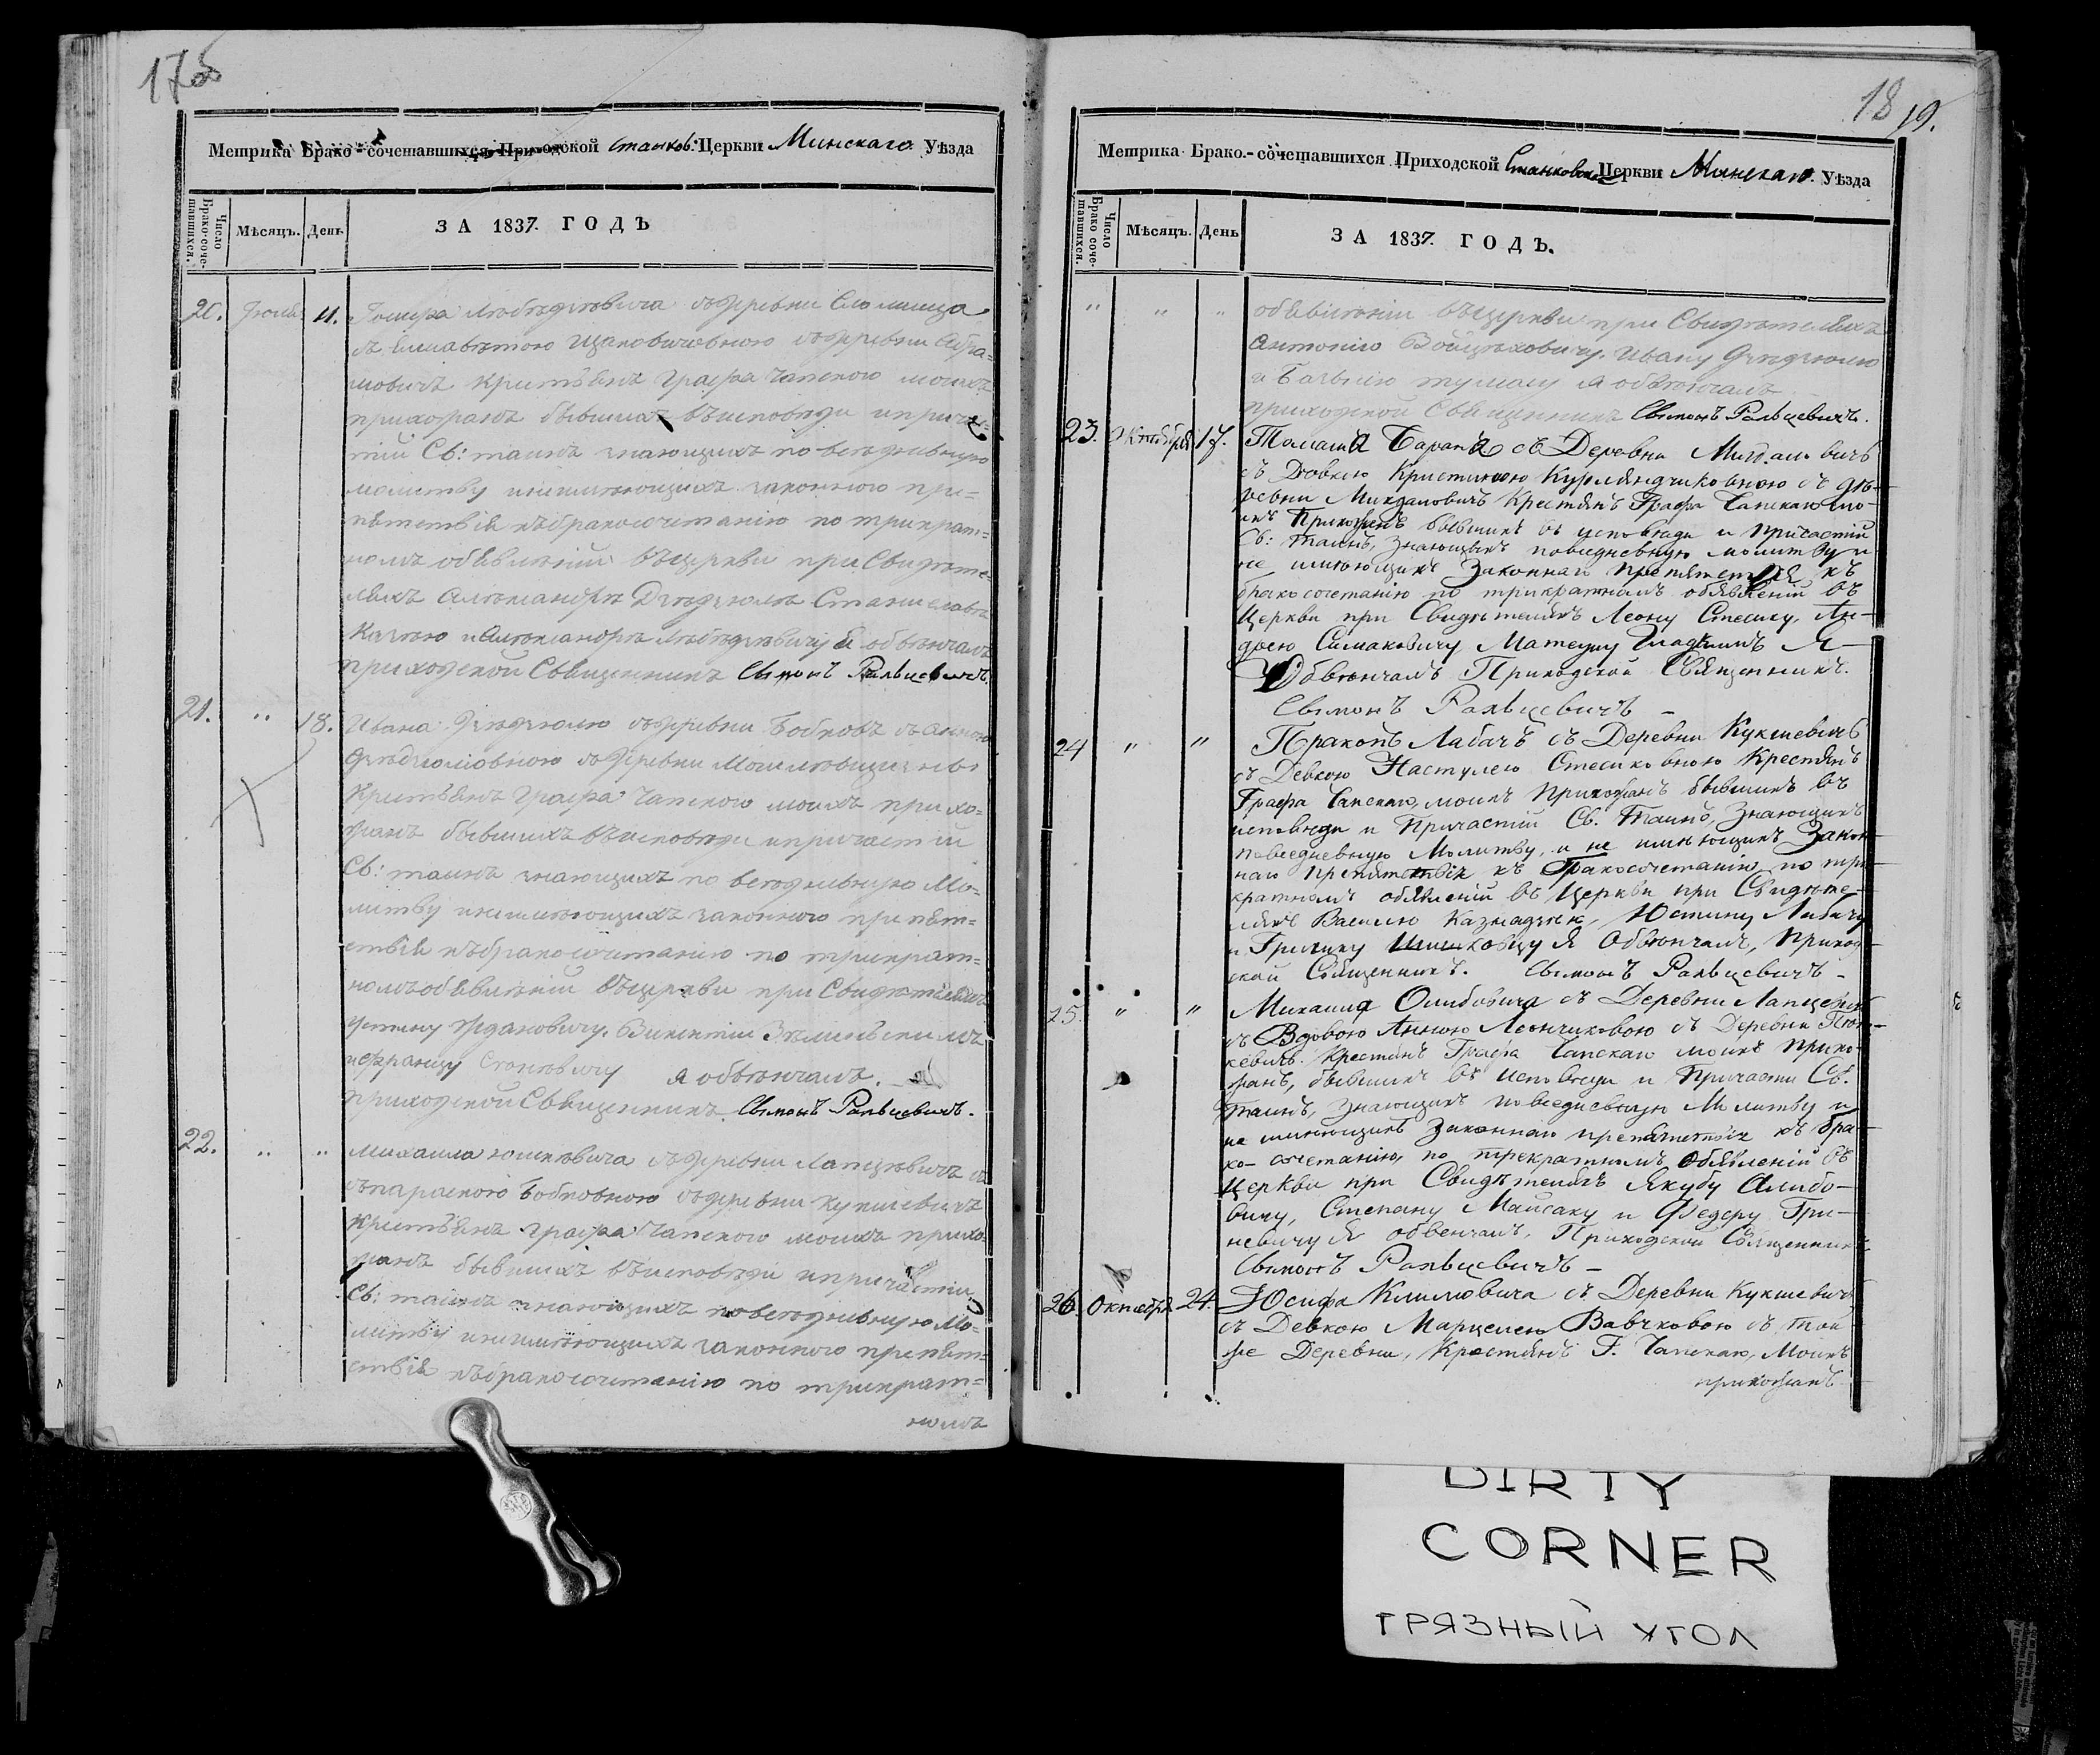 17об
Метрика Брако-сочетавшихся Приходской Станков: Церкви Минскаго Уѣзда
Число Брако-соче-тавшихся.
Мѣсяцъ.
День.
ЗА 1837. ГОДЪ
20. Іюля 11.
съ деревни
съ Елисаветою съ деревни Абра=
мовичъ Крестьянъ Графа Чапского моихъ
прихожанъ бывшихъ въ исповѣди и причас=
тіи Св: таинъ знающихъ повседневную
молитву и неимѣющихъ законного пре=
пятствія къ бракосочетанію по трикрат=
номъ обявленіи въ церкви при Свидѣте=
ляхъ Александрѣ Станиславѣ
и Александрѣ я обвѣнчалъ
приходской Священникъ Сымонъ Ральцевичъ.
21. " 18.
Ивана съ деревни Бобковъ съ Анною
съ деревни
Крестьянъ Графа Чапского моихъ прихо=
жанъ бывшихъ въ исповѣди и причастіи
Св: таинъ знающихъ повседневную Мо=
литву и неимѣющихъ законного препят=
ствія къ бракосочетанію по трикрат=
номъ обявленіи въ церкви при Свидѣтеляхъ
Устину Ждановичу, Викентіи
и Францу я обвѣнчалъ.
приходской Священникъ Сымонъ Ральцевичъ.
22. " "
Михаила Юшкевича съ деревни Лапцевичъ съ
съ Параскою Бобковною съ деревни Кукшевичъ
Крестьянъ Графа Чапского моихъ прихо=
жанъ бывшихъ въ исповѣди и причастіи
Св: таинъ знающихъ повседневную Мо=
литву и неимѣющихъ законного препят=
ствія къ бракосочетанію по трикрат=
номъ
18 19.
Метрика Брако-сочетавшихся Приходской Станковской Церкви Минскаго. Уѣзда
Число Брако соче-тавшихся.
Мѣсяцъ.
День
ЗА 1837. ГОДЪ.
" " "
обявленіи въ церкви при Свидѣтеляхъ
Антонію Войцеховичу, Ивану
и я обвѣнчалъ
приходской Священникъ Сымонъ Ральцевичъ.
23. Октября 17.
Томаша Барана съ Деревни Мигдаловичъ
съ Девкою Кристиною Курляндчиковною съ де-
ревни Мигдаловичъ Крестянъ Графа Чапскаго мо-
ихъ Прихожанъ бывшихъ въ исповѣди и Причастіи
Св: таинъ, Знающихъ повседневную молитву и
не имѣющихъ Законнаго Препятствія къ
бракосочетанію по трикратномъ обявленіи въ
Церкви при Свидѣтеляхъ Леону Стесику, Ан-
дрею Симаковичу Матеушу Я
Обвѣнчалъ Приходской Священникъ.
Сымонъ Ральцевичъ –
24 " "
Пракопъ Лабачъ съ Деревни Кукшевичъ
съ Девкою Настулею Стесиковною Крестянъ
Графа Чапскаго, моихъ Прихожанъ бывшихъ въ
исповѣди и Причастіи Св. Таинъ, Знающихъ
повседневную Молитву, и не имѣющихъ Закон-
наго Препятствія къ Бракосочетанію, по три-
кратномъ обявленіи въ Церкви при Свидѣте-
ляхъ Василю Юстину Лабачу
и Григорию Я Обвѣнчалъ, Приход-
ской Священникъ. Сымонъ Ральцевичъ –
25. " "
Михаила съ Деревни Лапцевичъ
съ Вдовою Анною съ Деревни
кевичъ. Крестянъ Графа Чапскаго моихъ Прихо-
жанъ, бывшихъ въ исповѣди и Причастіи Св.
таинъ, знающихъ повседневную Молитву и
не имѣющихъ Законнаго препятствія къ бра-
ко-сочетанію, по трекратномъ Обявленіи въ
Церкви при Свидѣтеляхъ Якубу
вичу, Степану Майсаку и Федеру Гри-
невичу Я обвенчалъ, Приходской Священникъ
Сымонъ Ральцевичъ –
26. Октября 24.
Юсифа Климовича съ Деревни Кукшевичъ
съ Девкою Марцелею Вавчковою съ той
же Деревни, Крестянъ Г. Чапскаго, Моихъ
прихожанъ
DIRTY
CORNER
ГРЯЗНЫЙ УГОЛ